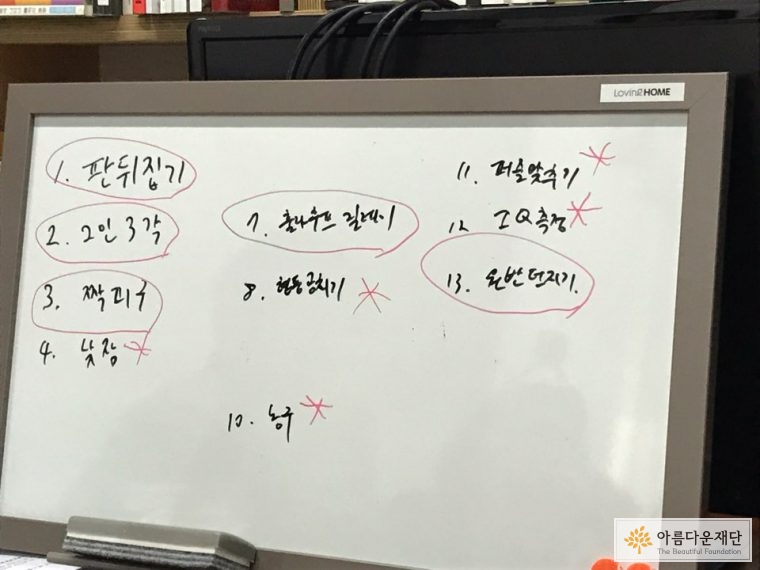 LovinG HOME
1. 판뒤집기
2. 2인 3각
3. 짝피구
4. 낮잠
7. 훌라후프 릴레이
8. 협동공치기
10. 농구
11. 퍼즐맞추기
12 IQ측정
13. 원반던지기.
아름다운재단
The Beautiful Foundation